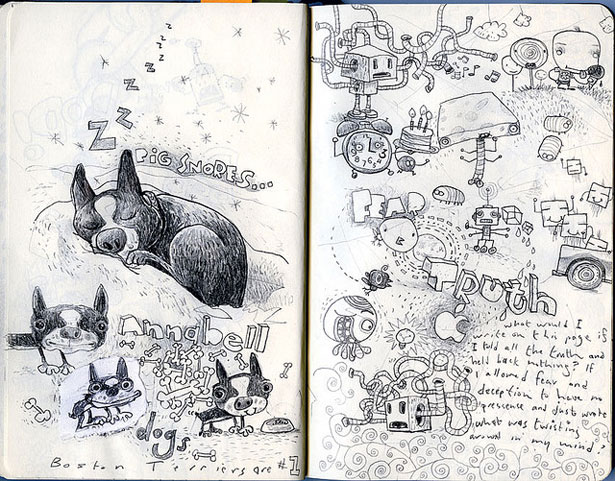 z
z
z
z
z
Z
Z
Z
BIG SNORES...
Annabell
dogs
Boston Terriers are #1
FEAR
Truth
what would I
write on this page if
I told all the truth and
held back nothing? If
I allowed fear and
deception to have no
presence and just wrote
what was twisting
around in my mind?